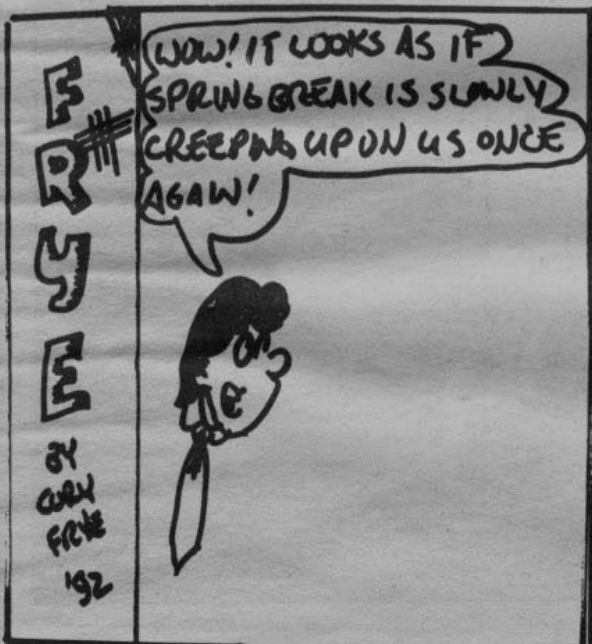 FRYE
BY
CORY
FRYE
'92
WOW! IT LOOKS AS IF
SPRING BREAK IS SLOWLY
CREEPING UPON US ONCE
AGAIN!